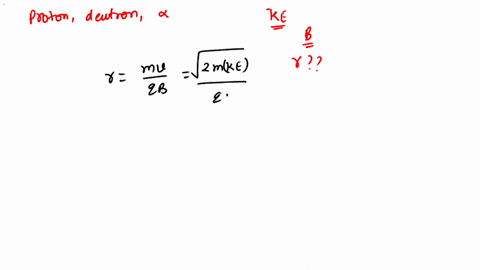 Proton, deutron, α KE
B
r ??
r = mv/qB = √2m(KE)/q.